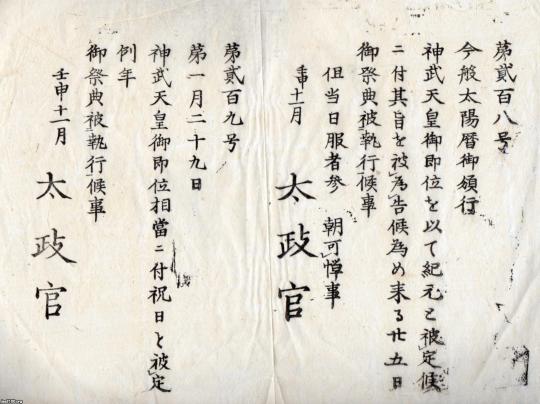 第貳百八号
今般太陽暦御頒行
神武天皇御即位を以て紀元と被定候
ニ付其旨を被為告候為め来る廿五日
御祭典被執行候事
但当日服者参 朝可憚事
壬申十一月
太政官
第貳百九号
第一月二十九日
神武天皇御即位相當ニ付祝日と被定
例年
御祭典被執行候事
壬申十一月
太政官